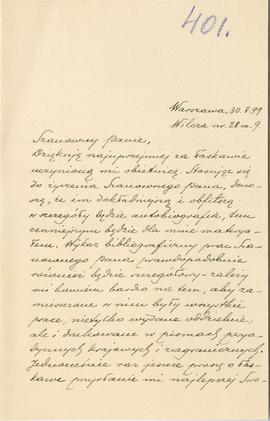 401.
Warszawa. 30. V. 99
Wilcza nr. 28 m. 9.
Szanowny Panie,
Dziękuję najuprzejmiej za łaskawie
uczynioną mi obietnicę. Stosując się
do życzenia Szanownego Pana, dono-
szę, że im dokładniejszą i obfitszą
w szczegóły będzie autobiografia, tem
cenniejszym będzie dla mnie materya-
łem. Wykaz bibliograficzny prac Sza-
nownego Pana prawdopodobnie
również będzie szczegółowy - zależy
mi bowiem bardzo na tem, aby za-
mieszczone w nim były wszystkie
prace, nietylko wydane oddzielnie,
ale i drukowane w pismach peryo-
dycznych krajowych i zagranicznych.
Jednocześnie raz jeszcze proszę o łas-
kawe przysłanie mi najlepszej Sza-